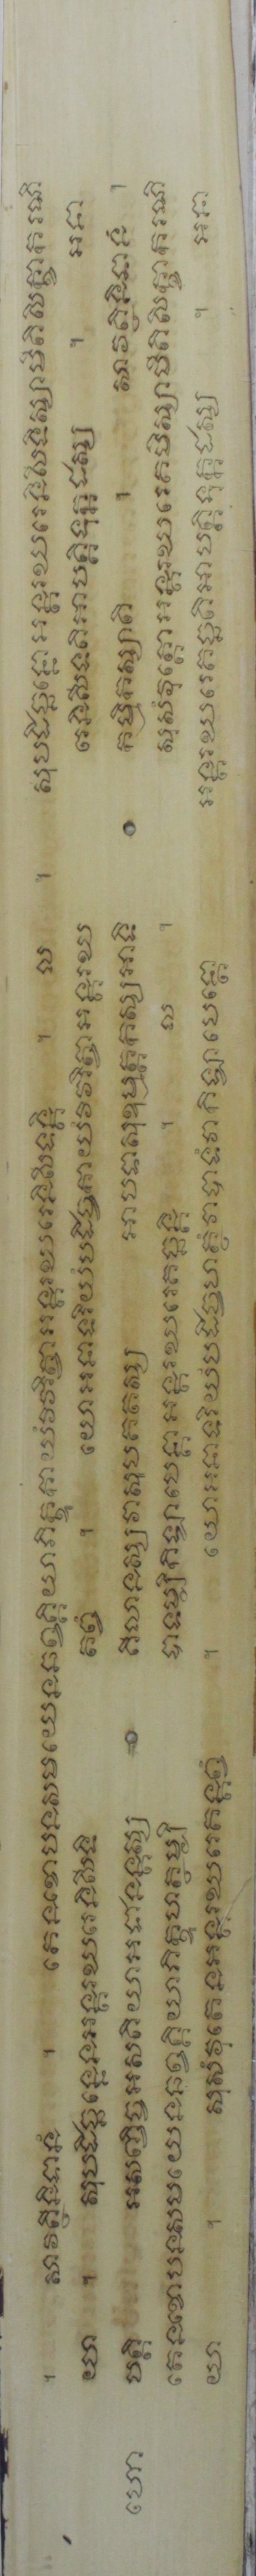 ។ សាវត្ថីនិទានំ ។ តេនខោបនសមយេនឆព្វគ្គិយាភិក្ខូកាយំវិវរិត្វាអន្តរឃរេនិសីទន្តិ ។ ល ។ សុបដិច្ឆន្នោអន្តរឃរេនិសីទិស្សាមីតិសិក្ខាករណី
យា ។ សុបដិច្ឆន្នេនអន្តរឃរេនិសីទិតព្វំ ។ យោអនាទរិយំបដិច្ចកាយំវិវរិត្វាអន្តរឃរេនិសីទតិអាបត្តិទុក្កដស្ស ។ អនា
ហោ បត្តិ អសញ្ចិច្ចអសតិយាអជានន្តស្ស គិលានស្សវាសុបគតស្ស អាបទាសុឧម្មត្តកស្សអាទិកម្មិកស្សាតិ ។ សាវត្ថីនិទានំ ។
តេនខោបនសមយេនឆព្វគ្គិយាភិក្ខូហត្ថម្បិ បាទម្បិកីឡាបេន្តាអន្តរឃរេគច្ឆន្តិ ។ ល ។ សុសំវុតោអន្តរឃរេគមិស្សាមីតិសិក្ខាករណី
យា ។ សុសំវុតេនអន្តរឃរេគន្តព្វំ ។ យោអនាទរិយំបដិច្ចហត្ថំវាបាទំវាកីឡាបេន្តោ អន្តរឃរេគច្ឆតិអាបត្តិទុក្កដស្ស ។ អនា